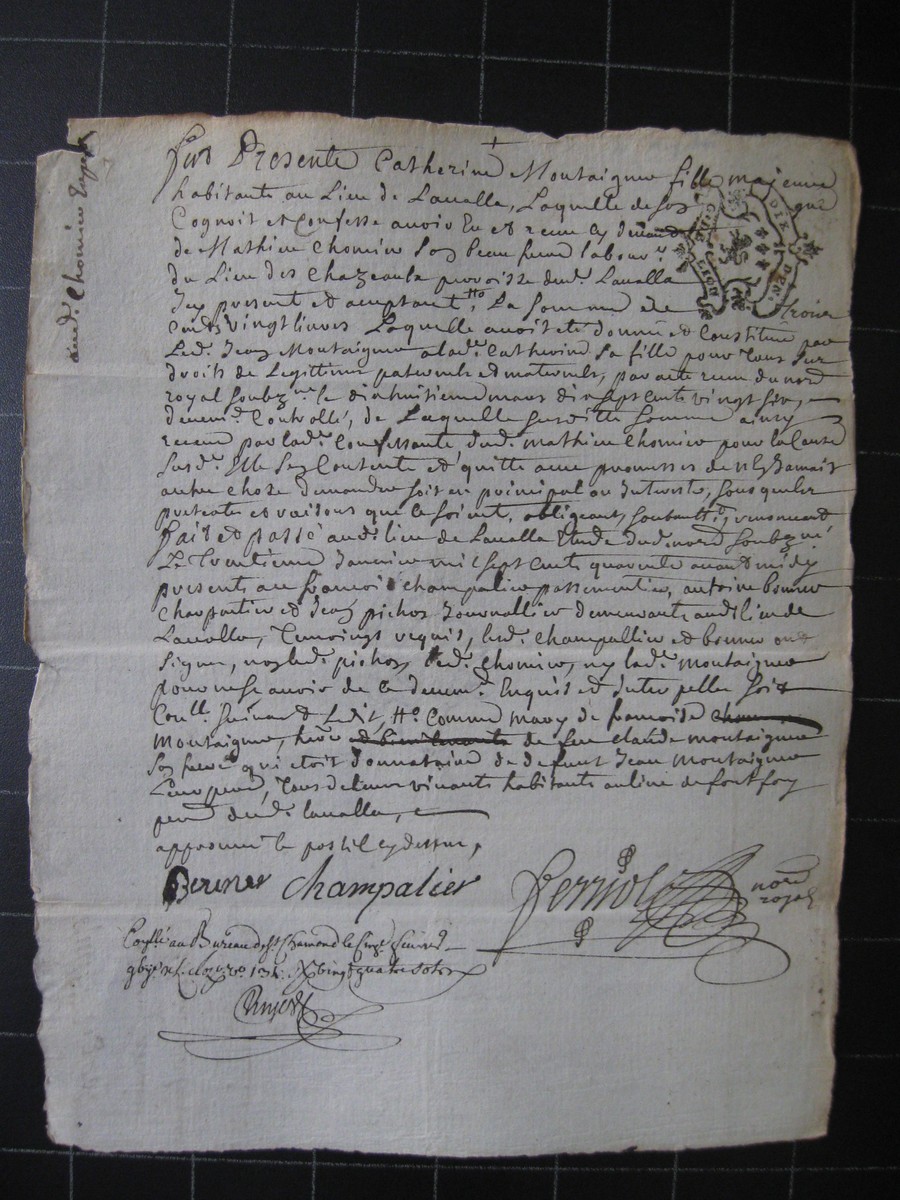 Fut Presente Catherine Montaignier fille majeure
habitante au Lieu de Lavalla, Laquelle de son gré
Cognoit et Confesse avoir Eu et receu cy devant
de Mathieu Chomier Son beau frere labour.r
du Lieu des Chazeaux parroisse dud. Lavalla
Icy present et acceptant, La Somme de trois
Cents vingt livres Laquelle avoit eté donné et Constitué par
Led. Jean Montaignier a lad. Catherine Sa fille pour tous Ses
droits de Legitime paternels et maternels, par acte receu du no.re
royal Soubz.né le dixhuitieme mars dix sept cents vingt six,
deuem.t Controllé, de Laquelle Susditte Somme ainsy
receue par lad. Confessante dud. Mathieu Chomier pour la Cause
Susd. Elle S'en Contente et quitte avec promesses de n'en Jamais
autre chose demander soit en principal ou Interests, sous quels
pretexte et raisons que ce soient, obligeant, soubmett. renonceant
Fait et passé aud. lieu de Lavalla Etude dud. no.re Soubz.né
Le Trentieme Janvier mil sept cents quarente avant midy
presents au francois Champalier passementier, antoine bonner
Charpentier et Jean pichon Journallier demeurants aud. lieu de
Lavalla, Temoings requis, lesd. Champallier et bonner ont
Signé, non led. pichon, led. Chomier, ny lad. Montaignier
pour ne sçavoir de ce deuem.t Enquis et Interpellés soit
Con.llé Suivant Ledit, Comme mary de francoise
Montaignier, de feu Claude Montaignier
Son frere qui etoit donnataire de defunt Jean Montaignier
Leur pere, Tous deux vivants habitants au lieu de
par. dud. lavalla,
approuvé le postil cy dessus,
Bonner Champalier Ferriolo no.re royal
Con.llé au Bureau de St Chamond le
vingt quatre sols
DIX DEN.
GEN. LION
aud. Chomier